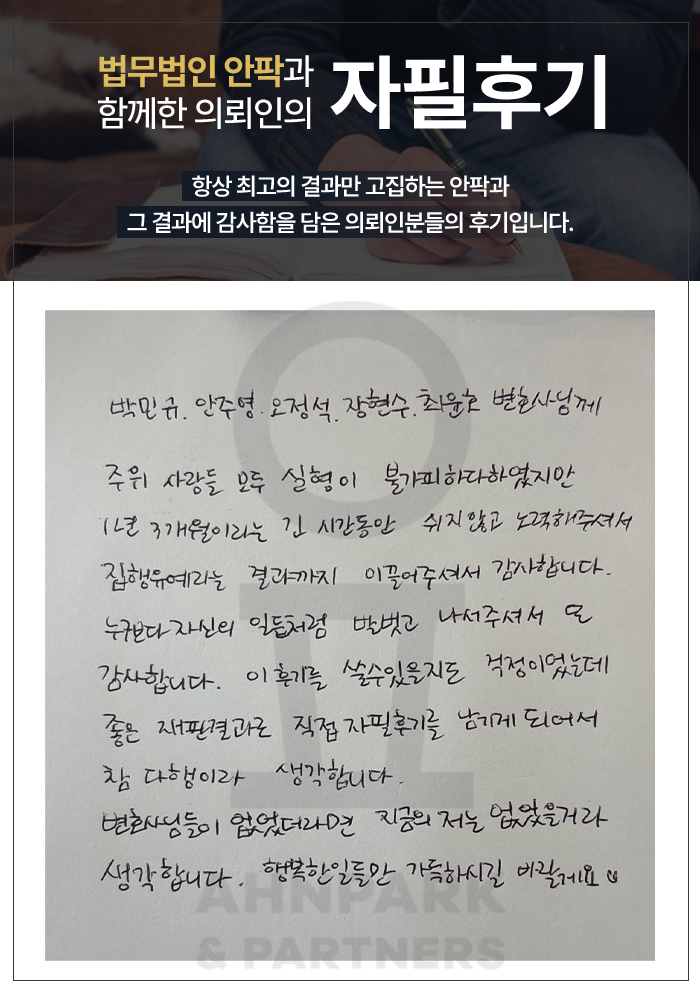 법무법인 안팍과
함께한 의뢰인의
자필후기
항상 최고의 결과만 고집하는 안팍과
그 결과에 감사함을 담은 의뢰인분들의 후기입니다.
박민규. 안주영. 오정석. 장현수. 최윤호 변호사님께
주위 사람들 모두 실형이 불가피하다하였지만
1년 3개월이라는 긴 시간동안 쉬지않고 노력해주셔서
집행유예라는 결과까지 이끌어주셔서 감사합니다.
누구보다 자신의 일들처럼 발벗고 나서주셔서 또
감사합니다. 이 후기를 쓸수있을지도 걱정이었는데
좋은 재판결과로 직접 자필후기를 남기게 되어서
참 다행이라 생각합니다.
변호사님들이 없었더라면 지금의 저는 없었을거라
생각합니다. 행복한일들만 가득하시길 바랄게요
AHNPARK
& PARTNERS